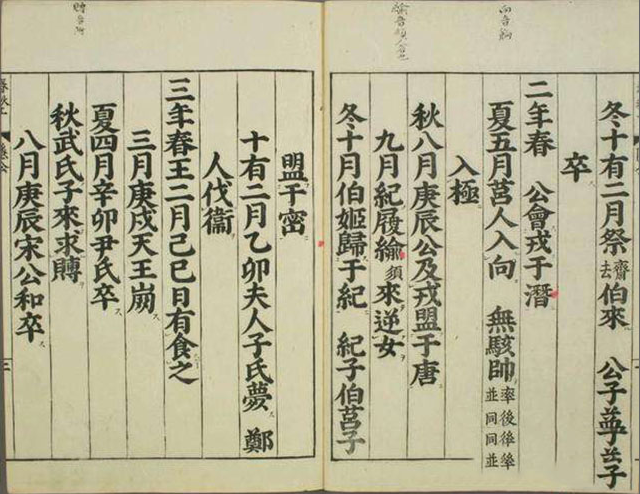 冬十有二月祭齋去伯來　公子益去子
卒
二年春　公會戎于潛
夏五月莒人入向　無駭帥率後徐率並同同並
入極
秋八月庚辰公及戎盟于唐
九月紀履緰須來逆女
冬十月伯姬歸于紀　紀子伯莒子
盟于密
十有二月乙卯夫人子氏薨　鄭
人伐衞
三年春王二月己巳日有食之
三月庚戌天王崩
夏四月辛卯尹氏卒
秋武氏子來求賻
八月庚辰宋公和卒
三
向音餉